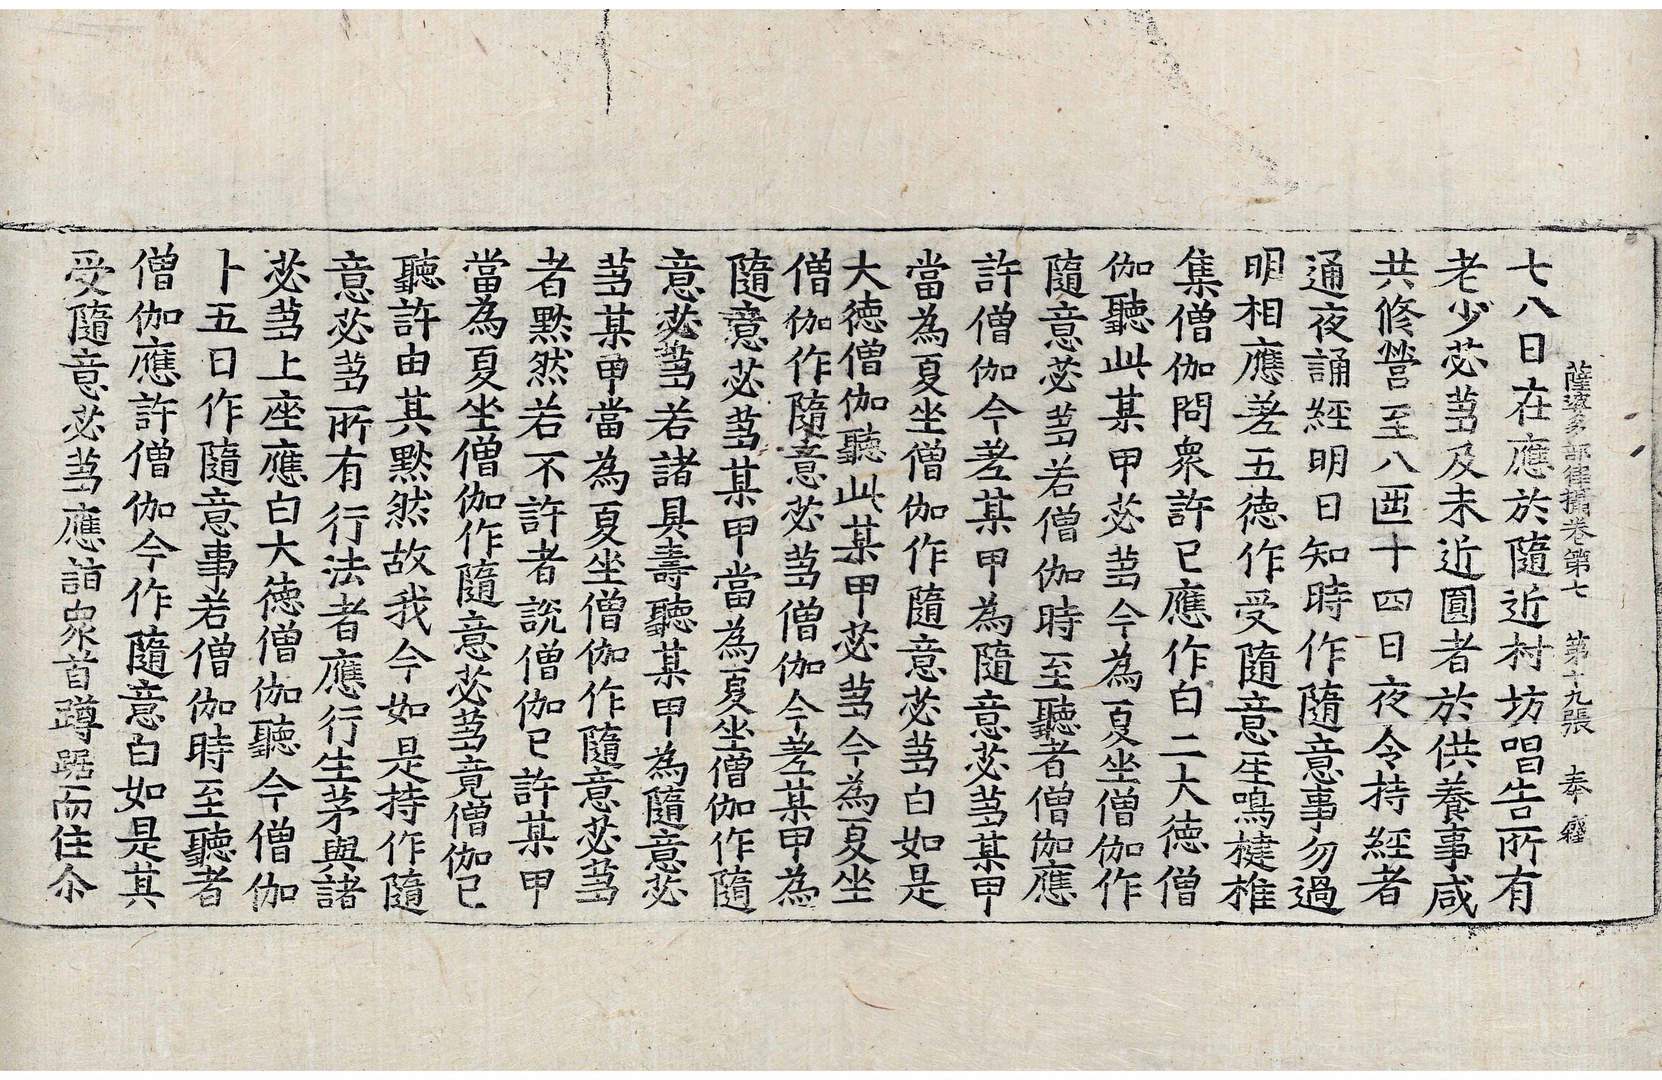 薩婆多部律攝卷第七　第十九張　奉
七八日在應於隨近村坊唱告所有
老少苾芻及未近圓者於供養事咸
共修營至八迺十四日夜令持經者
通夜誦經明日知時作隨意事勿過
明相應差五德作受隨意座鳴揵椎
集僧伽問衆許已應作白二大德僧
伽聽此某甲苾芻今為夏坐僧伽作
隨意苾芻若僧伽時至聽者僧伽應
許僧伽今差某甲為隨意苾芻某甲
當為夏坐僧伽作隨意苾芻白如是
大德僧伽聽此某甲苾芻今為夏坐
僧伽作隨意苾芻僧伽今差某甲為
隨意苾芻某甲當為夏坐僧伽作隨
意苾芻若諸具壽聽某甲為隨意苾
芻某甲當為夏坐僧伽作隨意苾芻
者黙然若不許者說僧伽已許某甲
當為夏坐僧伽作隨意苾芻竟僧伽已
聽許由其黙然故我今如是持作隨
意苾芻所有行法者應行生茅與諸
苾芻上座應白大德僧伽聽今僧伽
卜五日作隨意事若僧伽時至聽者
僧伽應許僧伽今作隨意白如是其
受隨意苾芻應詣衆首蹲踞而住尒